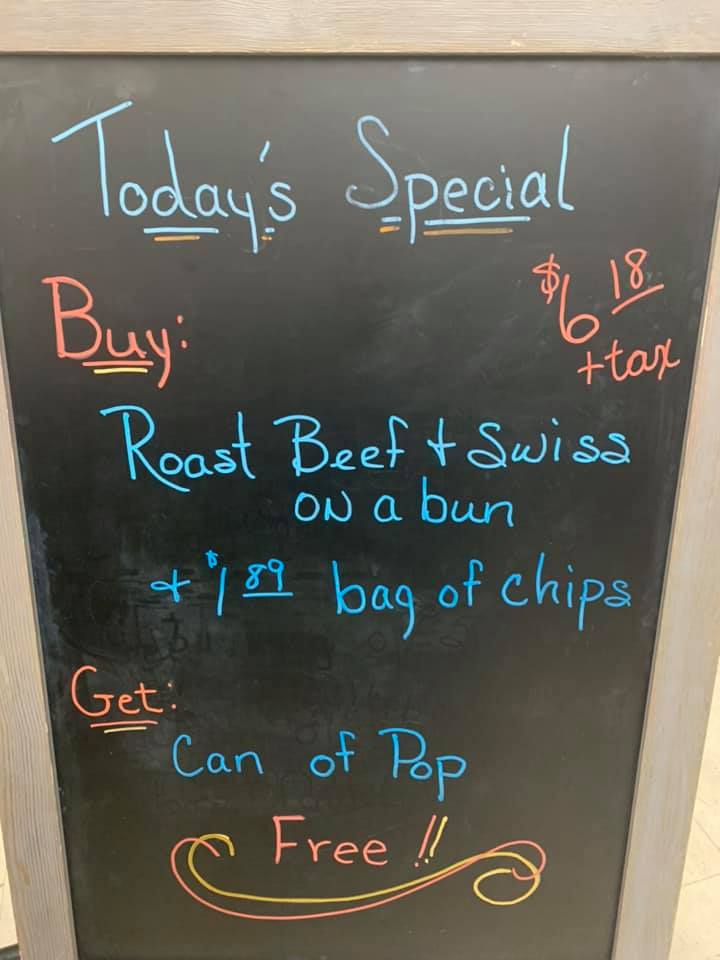 Today's Special
Buy:
$6 18
+ tax
Roast Beef + Swiss
on a bun
+ $1 89 bag of chips
Get:
Can of Pop
Free !!